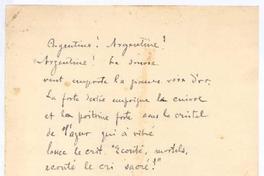 Argentine! Argentine!
Argentine! Le sonore
vent emporte la grande voix d'or.
La forte dextre empoigne le cuivre
et la poitrine forte sous le cristal
de l'azur qui a vibré
lance le cri: "Ecoutez, mortels,
ecoutez le cri sacré!"